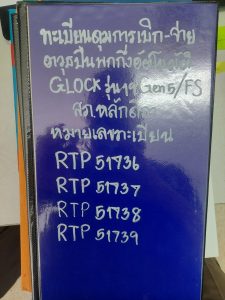 ทะเบียนคุมการเบิก-จ่าย
อาวุธปืนพกกึ่งอัตโนมัติ
GLOCK รุ่น 19 Gen5/FS
สภ.หลักศิลา
หมายเลขทะเบียน
RTP 51736
RTP 51737
RTP 51738
RTP 51739